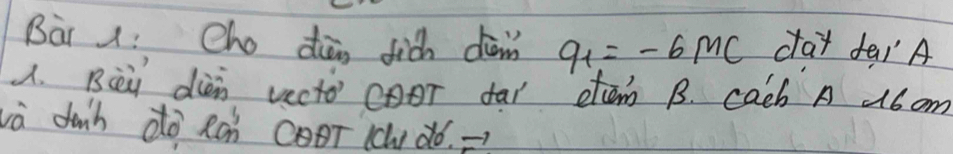 Bài 1: Cho điện tích điểm q₁ = -6 MC đặt tại A
1. Biểu diễn vectơ CĐĐT tại điểm B. cách A 16 cm
và tính độ lớn CĐĐT khi đó. →